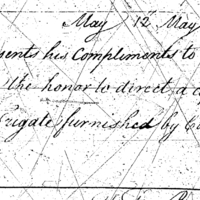 May 12th May
sents his Compliments to
the honor to direct a
Frigate furnished by